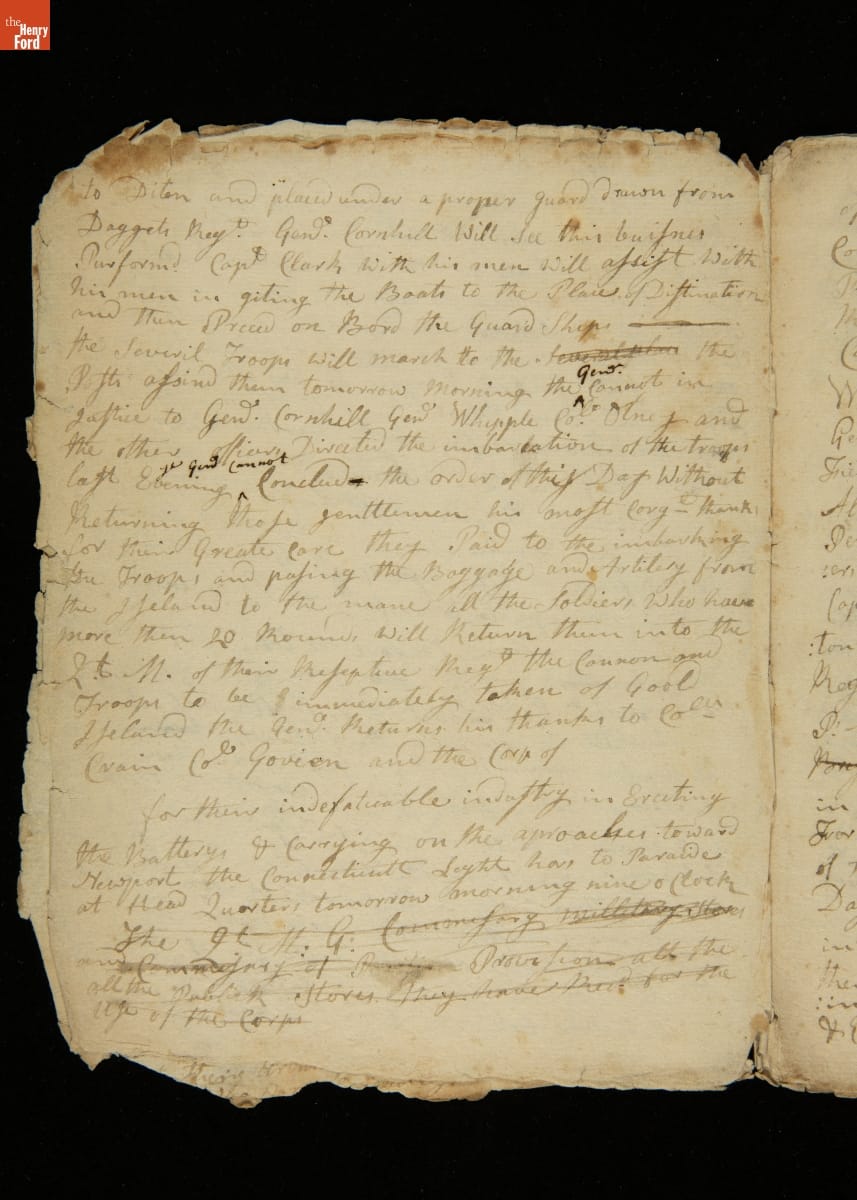 the
Henry
Ford
to Diten and placed under a proper guard drawn from
Daggets Regt. Genl. Cornhill Will See this buisnes
Purformd. Capt Clark with his men will assist With
his men in giting the Boats to the Place of Distination
and then Preed on Bord the Guard Ships
the Severil Troops will march to the several the
Posts assind them tomorrow Morning the Genl. Cannot in
Justice to Genl. Cornhill Genl Whipple Col. Olney and
the other officers Directed the imbarcation of the troops
last Evening ye Genl Cannot Conclude the order of this Day Without
Returning those gentlemen his most thanks
for their Greate Care they Paid to the imbarking
the Troops and pasing the Baggage and Artilery from
the Iseland to the mane all the Soldiers Who have
more then 20 Rounds Will Return them into the
Qt. M. of their Reseptive Regt the Cannon and
Troops to be immediately taken of Goold
Iseland the Genl. Returns his thanks to Coln
Crain Col. Govien and the Corp of
for their indefaticable industry in Erecting
the Batterys & Carrying on the aproaches toward
Newport the Connecticutt Light hors to Parade
at Head Quarters tomorrow morning nine o Clock
The Qt. M. G: Commisary millitary Stores
and Commisary of Provision all the
all the Publick Stores They have Recd for the
Use of the Corps